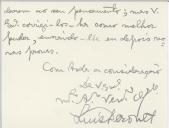 deram ao seu pensamento; mas V.
Exª corrigi-los-ha como melhor
puder, enviando-lhe eu depois no-
vas provas.
Com toda a consideração
De V. Exª
Luis Derouet